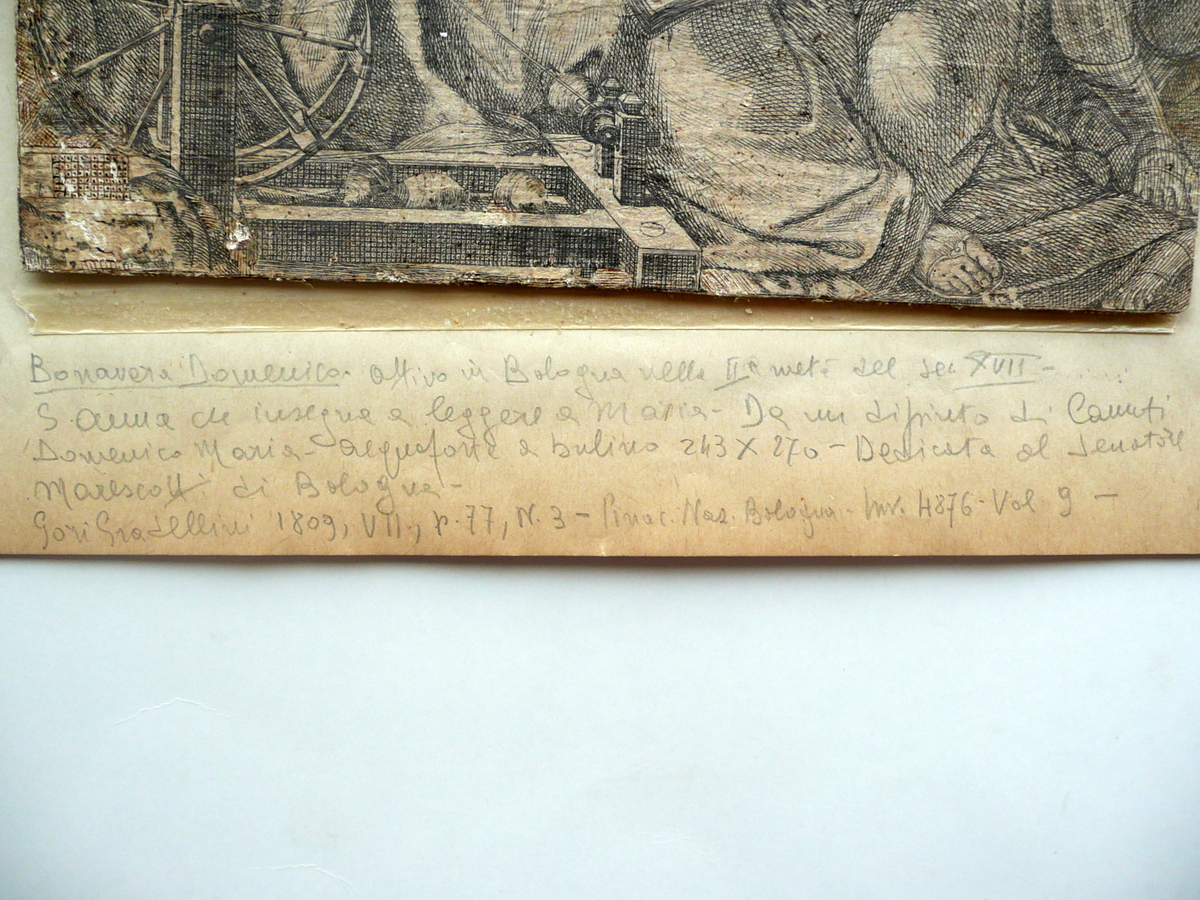 Bonavera Domenico. attivo in Bologna nella IIª metà del sec XVII -
S. Anna che insegna a leggere a Maria - Da un dipinto di Canuti
Domenico Maria - acquaforte a bulino 243 X 270 - Dedicata al Senatore
Marescotti di Bologna -
Gori Gradellini 1809, VII, p. 77, N. 3 - Pinac. Naz. Bologna - Inv. 4876 - Vol 9 -